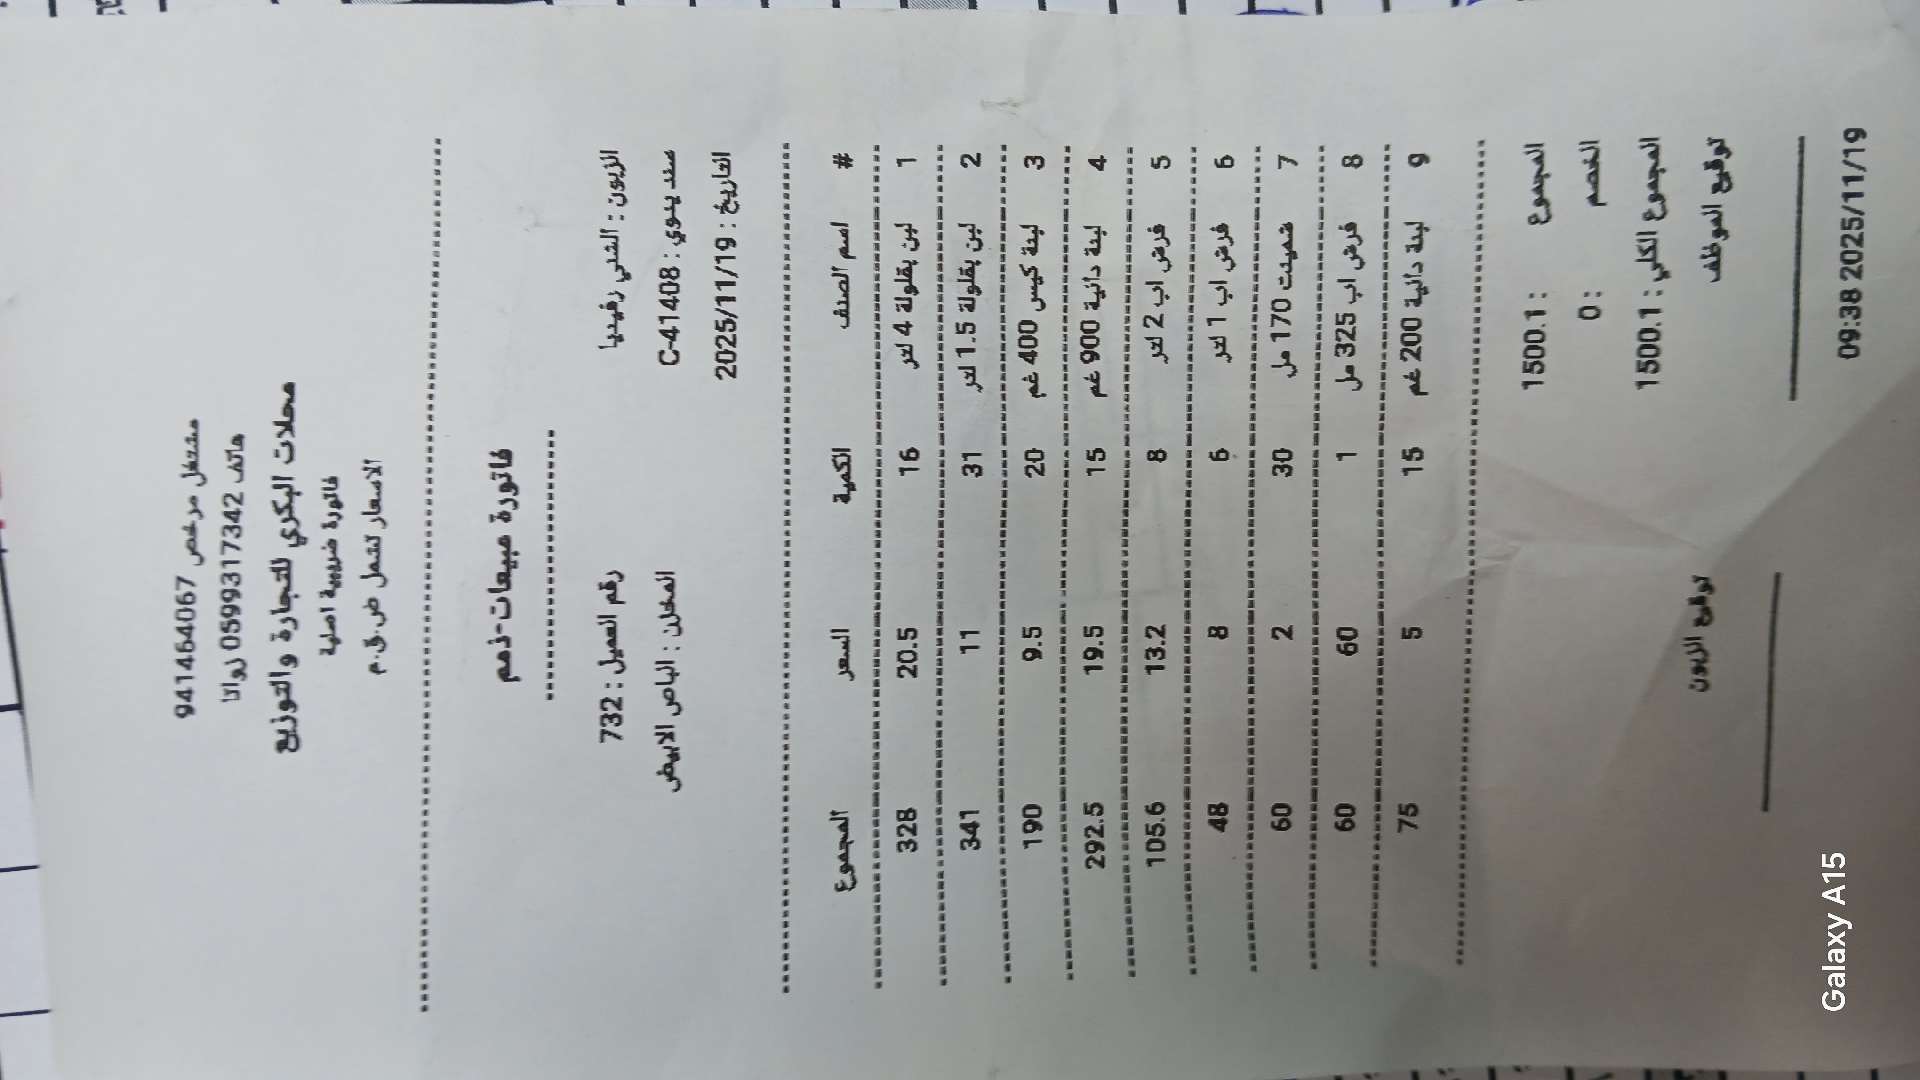 مشتغل مرخص 941464067
هاتف 0599317342 روانا
محلات البكري للتجارة و التوزيع
فاتورة ضريبية اصلية
الاسعار تشمل ض.ق.م
فاتورة مبيعات-ذمم
الزبون : الشلي رفيديا رقم العميل : 732
سند يدوي : C-41408 المخزن : الباص الابيض
التاريخ : 2025/11/19
# اسم الصنف الكمية السعر المجموع
1 لبن بقلولة 4 لتر 16 20.5 328
2 لبن بقلولة 1.5 لتر 31 11 341
3 لبنة كيس 400 غم 20 9.5 190
4 لبنة دانية 900 غم 15 19.5 292.5
5 فرش اب 2 لتر 8 13.2 105.6
6 فرش اب 1 لتر 6 8 48
7 شمينت 170 مل 30 2 60
8 فرش اب 325 مل 1 60 60
9 لبنة دانية 200 غم 15 5 75
المجموع : 1500.1
الخصم : 0
المجموع الكلي : 1500.1
توقيع الموظف توقيع الزبون
09:38 2025/11/19
Galaxy A15